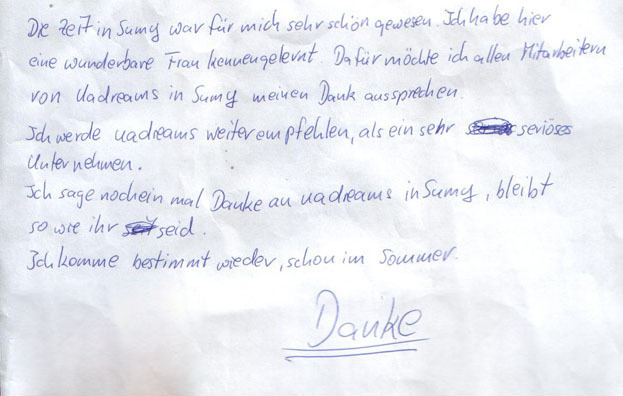 Die Zeit in Sumy war für mich sehr schön gewesen. Ich habe hier
eine wunderbare Frau kennengelernt. Dafür möchte ich allen Mitarbeitern
von Uadreams in Sumy meinen Dank aussprechen.
Ich werde uadreams weiterempfehlen, als ein sehr seriöses
Unternehmen.
Ich sage nochein mal Danke an uadreams in Sumy, bleibt
so wie ihr seid.
Ich komme bestimmt wieder, schon im Sommer.
Danke